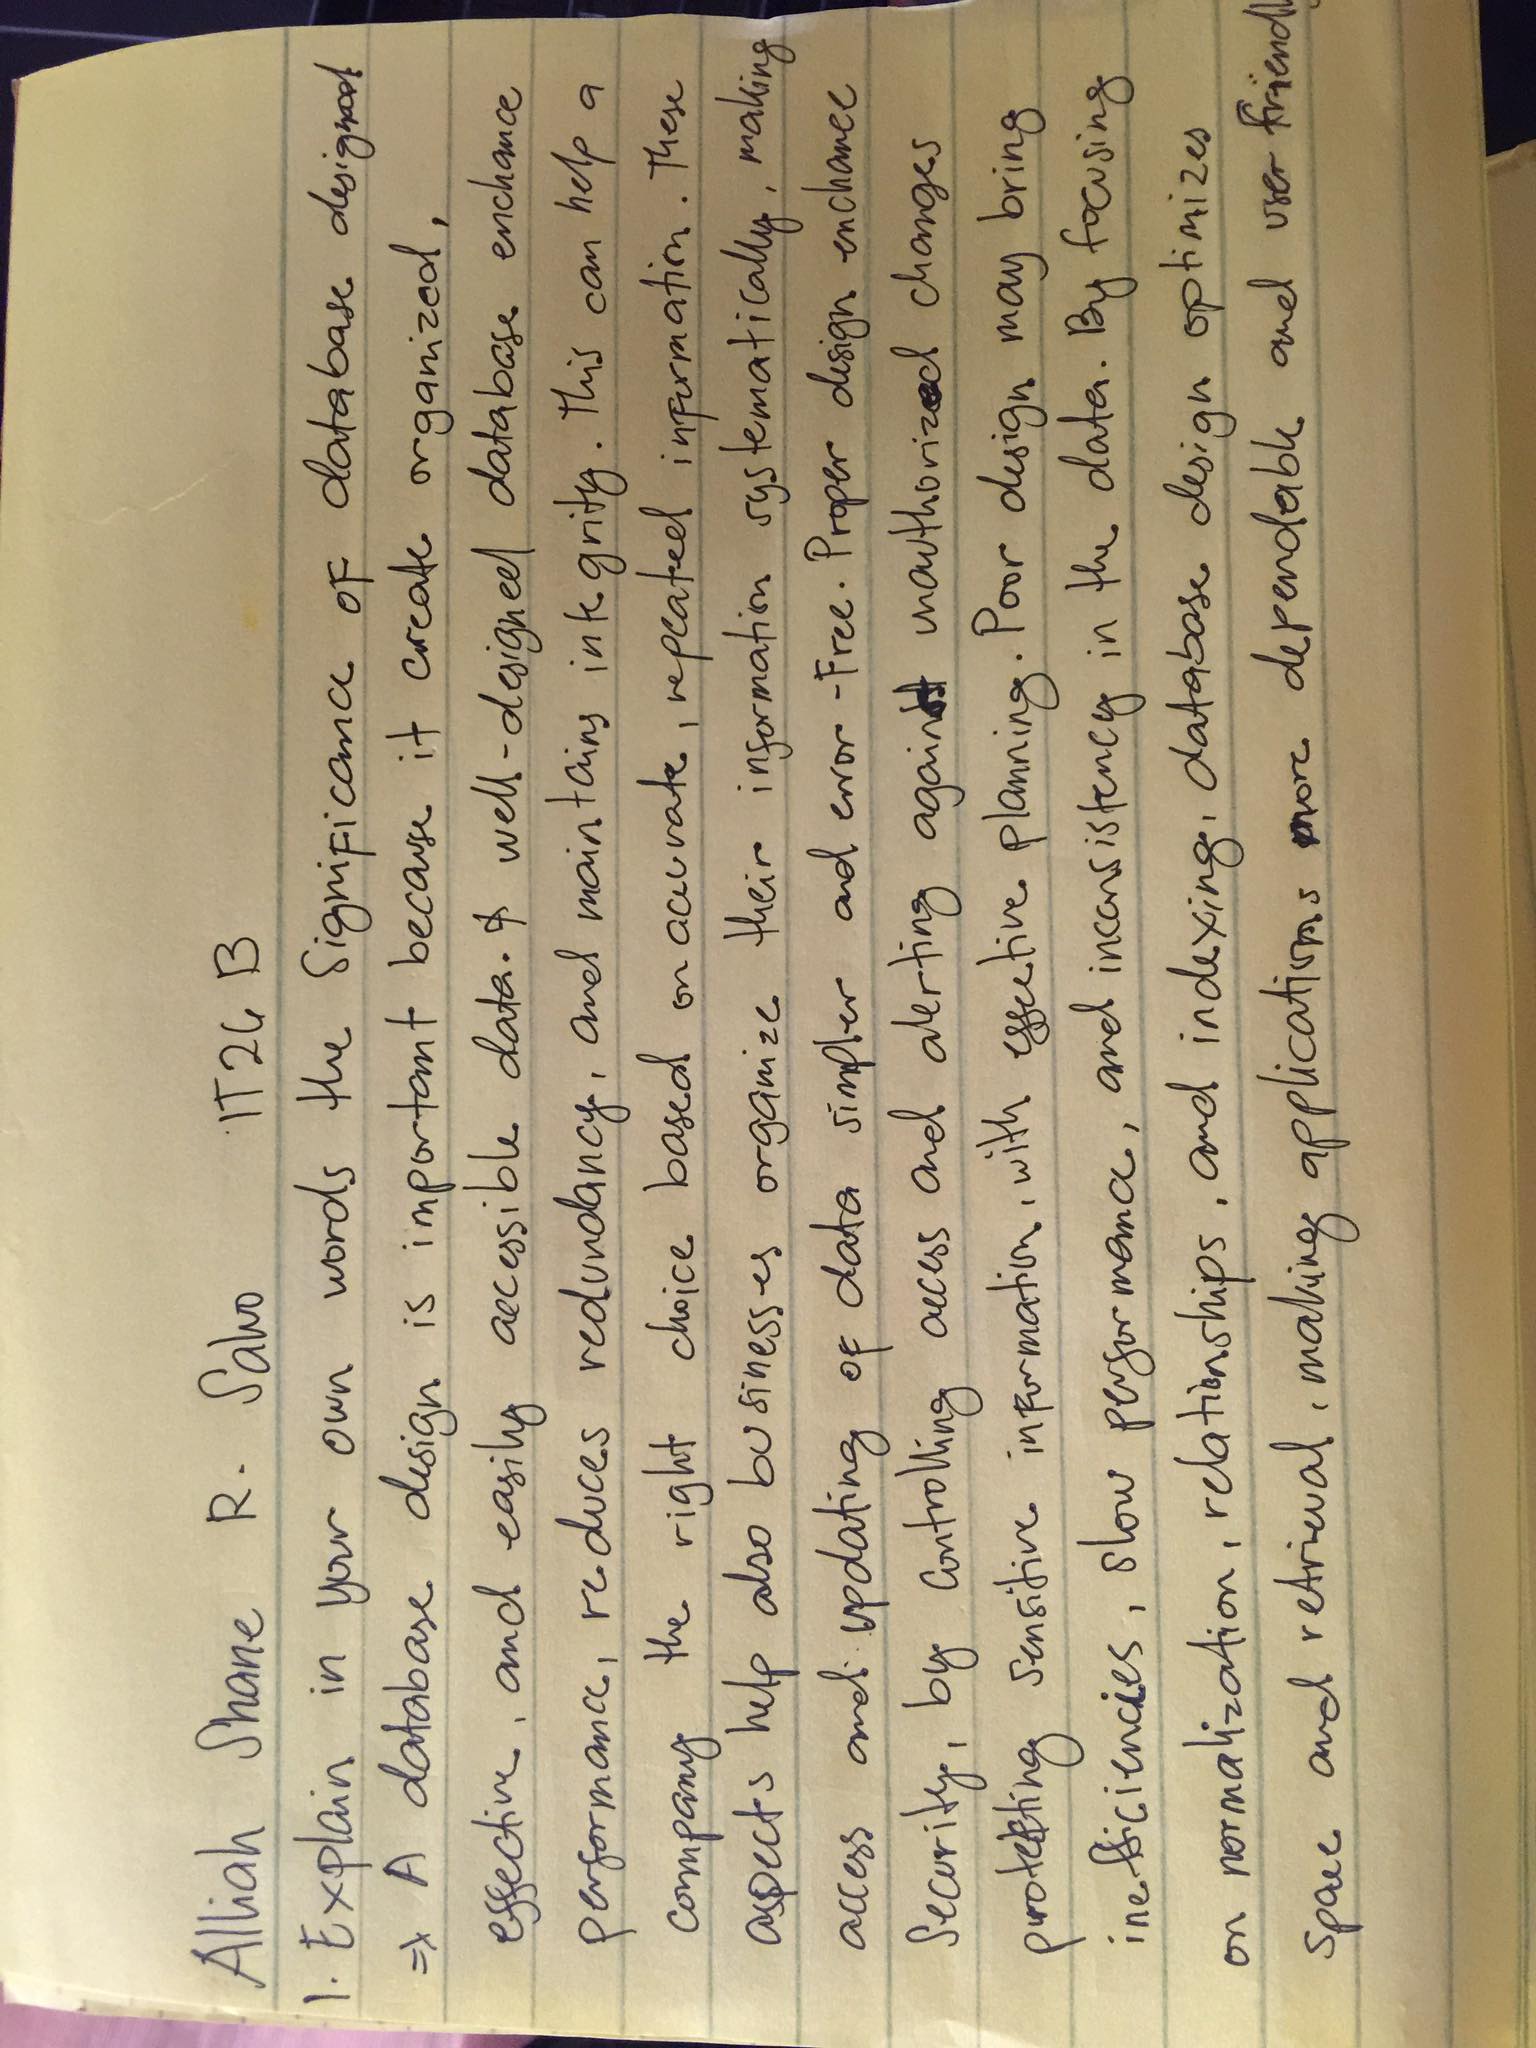 Alliah Shane R. Salvo IT26 B
1. Explain in your own words the significance of database design
=> A database design is important because it create organized,
effective, and easily accessible data. A well-designed database enchance
performance, reduces redundancy, and maintains integrity. This can help a
company the right choice based on accurate, repeated information. These
aspects help also businesses organize their information systematically, making
access and updating of data simpler and error-free. Proper design enchance
security, by controlling access and alerting against unauthorized changes
protecting sensitive information, with effective planning. Poor design may bring
inefficiencies, slow performance, and inconsistency in the data. By focusing
on normalization, relationships, and indexing, database design optimizes
space and retrieval, making applications more dependable and user friendly